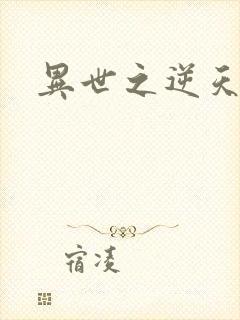 異世之逆天
宿凌